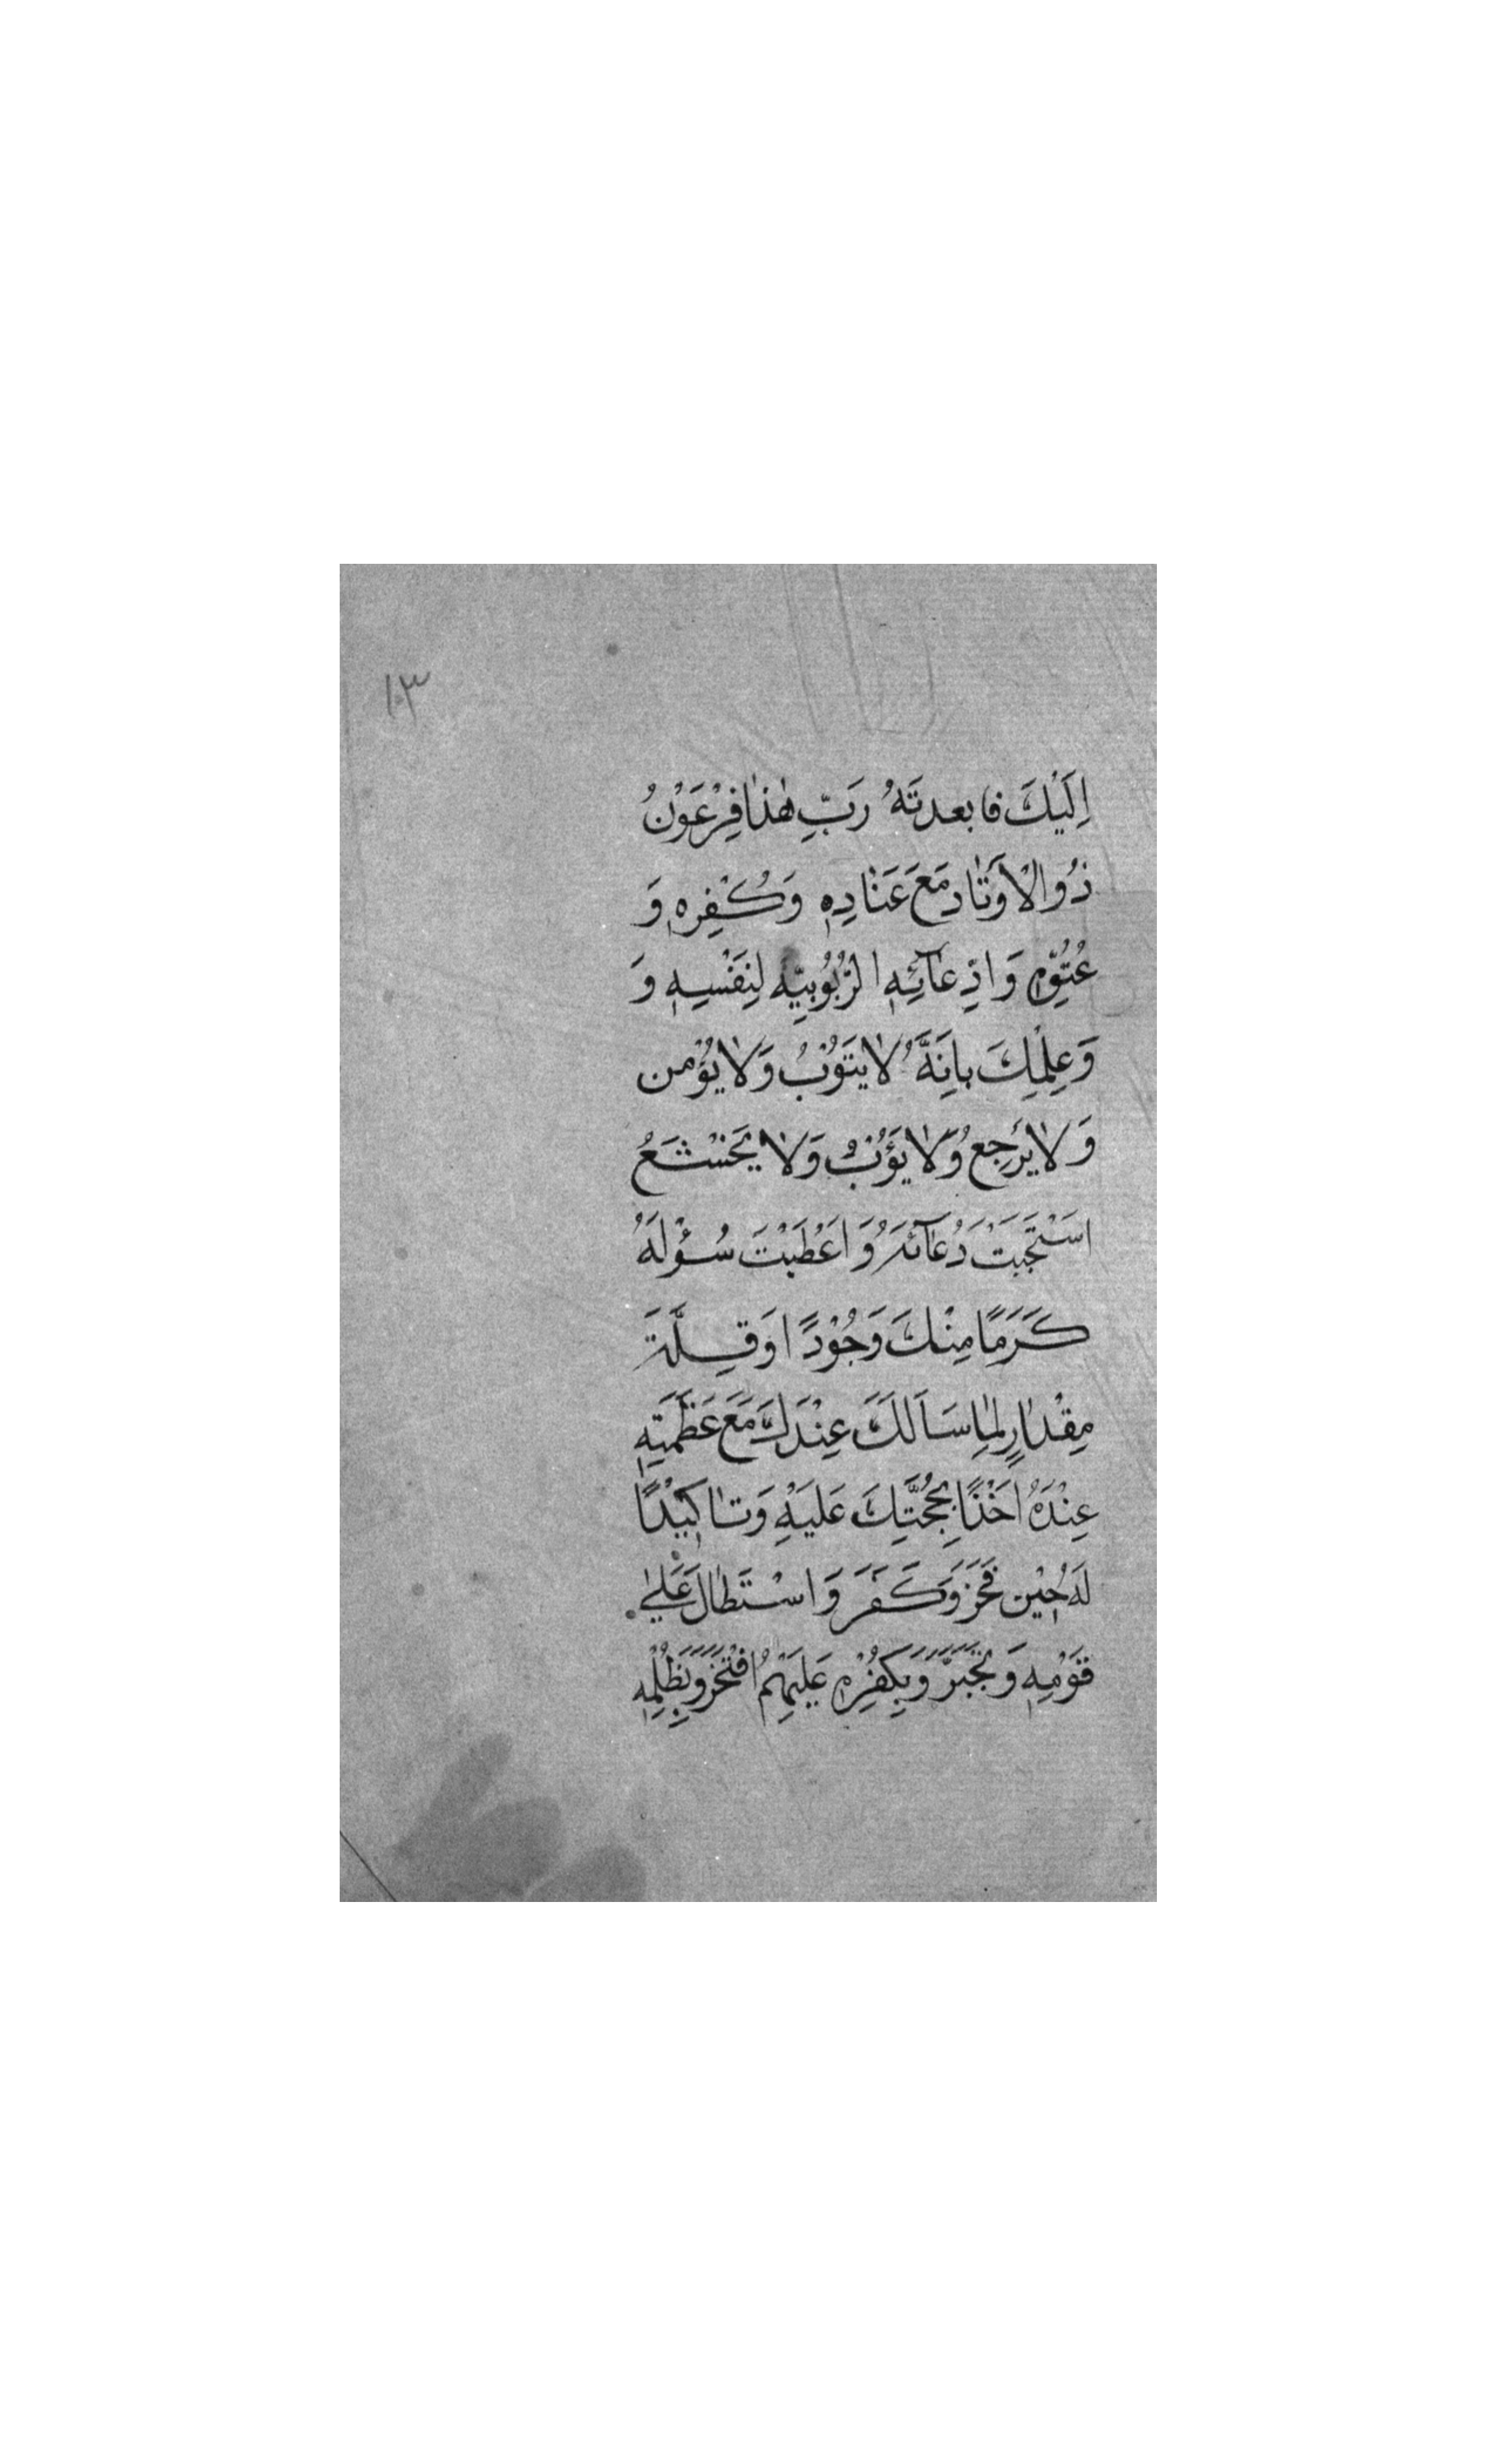 ١٠٣
اِلَيْكَ فابعدتَهُ رَبِّ هٰذٰا فِرْعَوْنُ
ذُو الْاَوَتٰادِ مَعَ عَنٰادِهٖ وَكُفْرِهٖ وَ
عُتُوِّهٖ وَادِّعٰآئِهِ الرُّبُوُبِيّهِ لِنَفْسِهٖ وَ
وَعِلْمِكَ بِاَنَّهُ لٰا يَتَوُبُ وَلٰا يُؤْمن
وَلٰا يَرْجِعُ وَلٰا يَؤُبُ وَلٰا يَخْشَعُ
اسَتَجَبْتَ دُعٰآئَهُ وَاَعْطَيْتَ سُؤْلَهُ
كَرَمًا مِنْكَ وَجُوْدًا وَقِلَّةَ
مِقْدٰارٍ لِمٰا سَاَلَكَ عِنْدَكَ مَعَ عَظَمَتِهٖ
عِنْدَهُ اَخْذًا بِحُجَّتِكَ عَلَيْهِ وَتٰاكٖيْدًا
لَهٰا حٖيْن فَجَرَ وَكَفَرَ وَاسْتَطٰالَ عَلٰي
قَوْمِهٖ وَتَجَبَّرَ وَبِكُفْرِهٖ عَلَيْهِمُ افْتَخَرَ وَبِظُلْمِهٖ